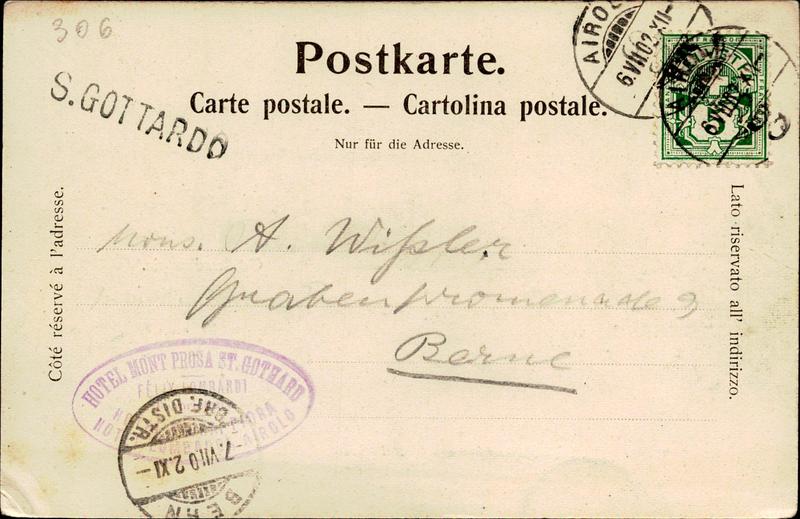 306
Postkarte.
Carte postale. — Cartolina postale.
Nur für die Adresse.
S. GOTTARDO
AIROLO
6.VII.02.XII–
5
Côté réservé à l'adresse.
Lato riservato all' indirizzo.
Mons. A. Wißler
Grabenpromenade 9
Berne
HOTEL MONT PROSA ST. GOTHARD
FÉLIX LOMBARDI
AIROLO
BRF. DISTR.
–7.VII.02.XI–
BERN